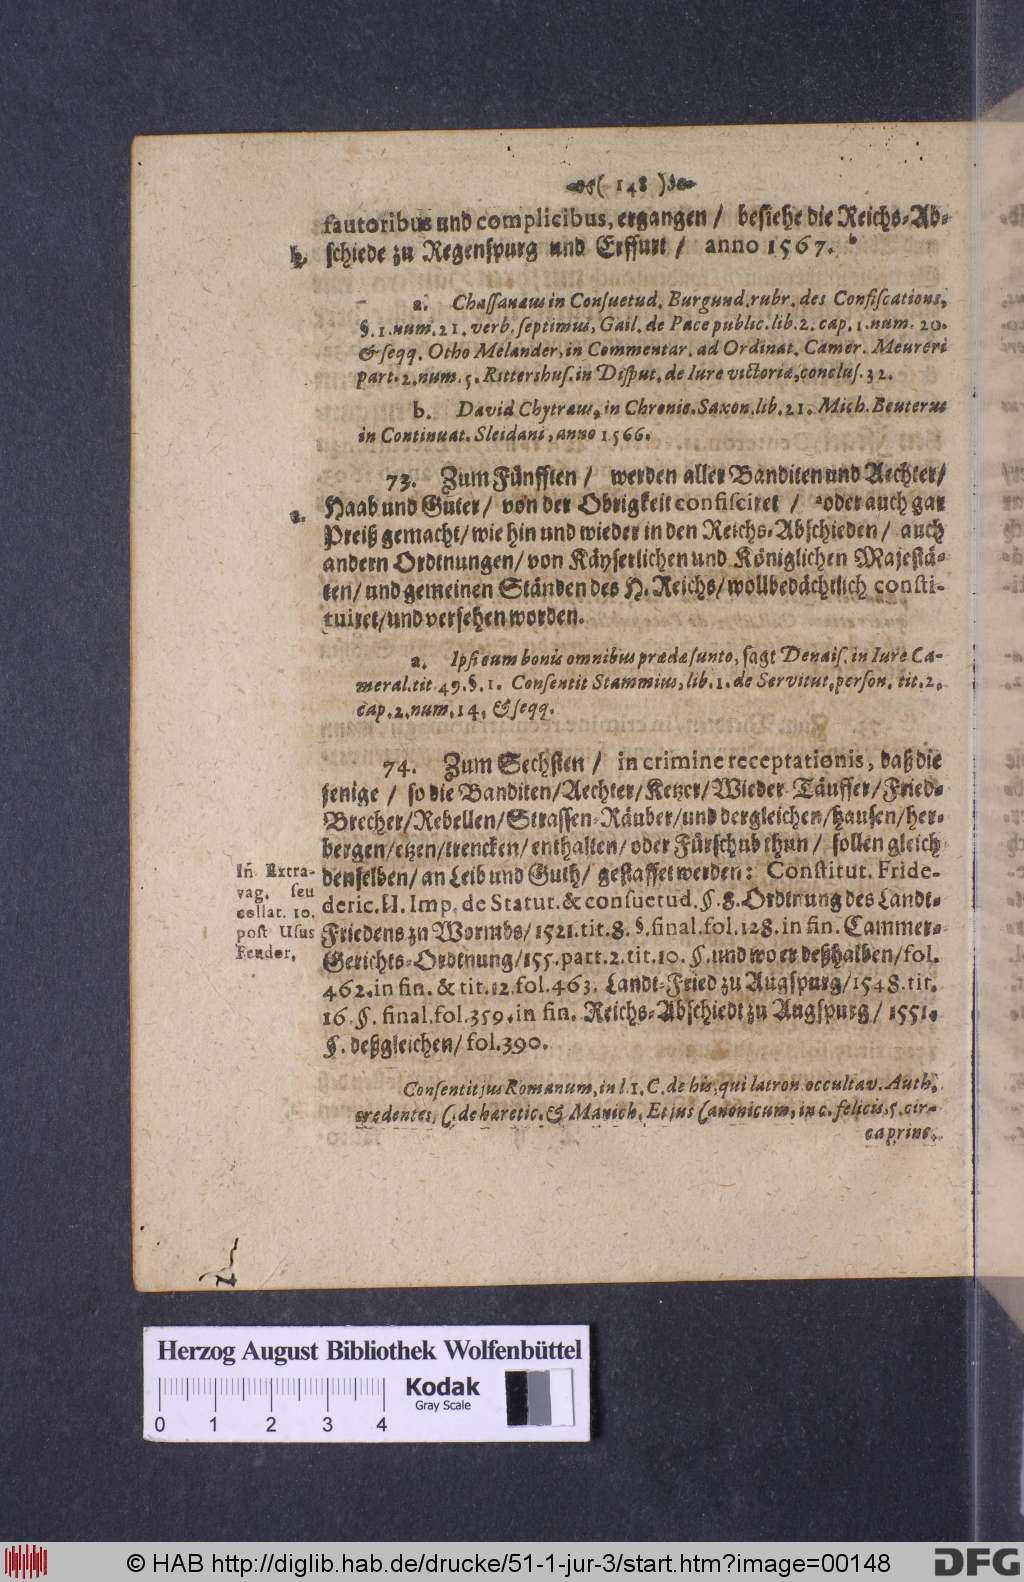 ( 148 )
fautoribus und complicibus, ergangen / besiehe die Reichs-Ab-
b. schiede zu Regenspurg und Erffurt / anno 1567. b
a. Chassanæus in Consuetud. Burgund. rubr. des Confiscations,
§. 1. num. 21. verb. septimus, Gail. de Pace public. lib. 2. cap. 1. num. 20.
& seqq. Otho Melander, in Commentar. ad Ordinat. Camer. Meureri
part. 2. num. 5. Rittershus. in Disput. de Iure victoriæ, conclus. 32.
b. David Chytræus, in Chronic. Saxon. lib. 21. Mich. Beuterus
in Continuat. Sleidani, anno 1566.
73. Zum Fünfften / werden aller Banditen und Aechter /
a. Haab und Güter / von der Obrigkeit confisciret / a oder auch gar
Preiß gemacht / wie hin und wieder in den Reichs-Abschieden / auch
andern Ordtnungen / von Käyserlichen und Königlichen Majestä-
ten / und gemeinen Ständen des H. Reichs / wollbedächtlich consti-
tuiret / und versehen worden.
a. Ipsi cum bonis omnibus prædæ sunto, sagt Denais. in Iure Ca-
meral. tit. 49. §. 1. Consentit Stammius, lib. 1. de Servitut. person. tit. 2.
cap. 2. num. 14. & seqq.
74. Zum Sechsten / in crimine receptationis, daß die
jenige / so die Banditen / Aechter / Ketzer / Wieder-Täuffer / Fried-
Brecher / Rebellen / Strassen-Räuber / und dergleichen / hausen / her-
bergen / etzen / trencken / enthalten / oder Fürschub thun / sollen gleich
denselben / an Leib und Guth / gestaffet werden: Constitut. Fride-
deric. II. Imp. de Statut. & consuetud. §. 8. Ordtnung des Landt-
Friedens zu Wormbs / 1521. tit. 8. §. final. fol. 128. in fin. Cammer-
Gerichts-Ordtnung / 155. part. 2. tit. 10. §. und wo er deßhalben / fol.
462. in fin. & tit. 12. fol. 463. Landt-Fried zu Augspurg / 1548. tit.
16. §. final. fol. 359. in fin. Reichs-Abschiedt zu Augspurg / 1551.
§. deßgleichen / fol. 390.
In Extra-
vag. seu
collat. 10.
post Usus
Feudor.
Consentit jus Romanum, in l. 1. C. de his, qui latron. occultav. Auth.
credentes, C. de hæretic. & Manich. Et jus Canonicum, in c. felicis, 5. cir-
ca princ.
Herzog August Bibliothek Wolfenbüttel
Kodak
Gray Scale
0 1 2 3 4
© HAB http://diglib.hab.de/drucke/51-1-jur-3/start.htm?image=00148
DFG